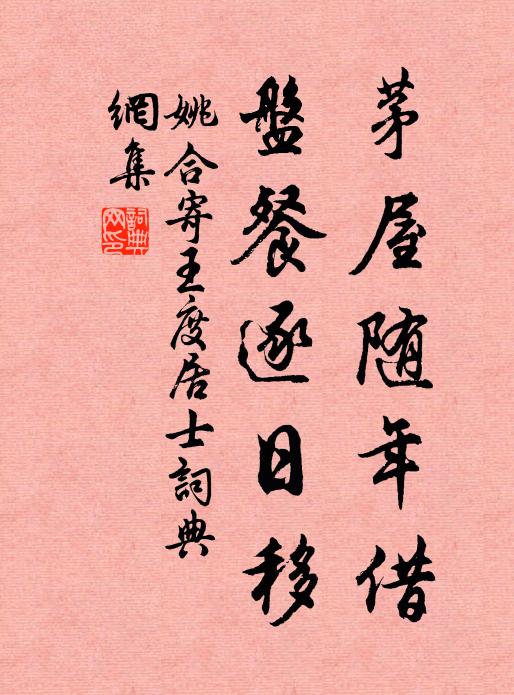 茅屋随年借
盤餐逐日移
姚合寄王度居士詞典
網集
詞典網印